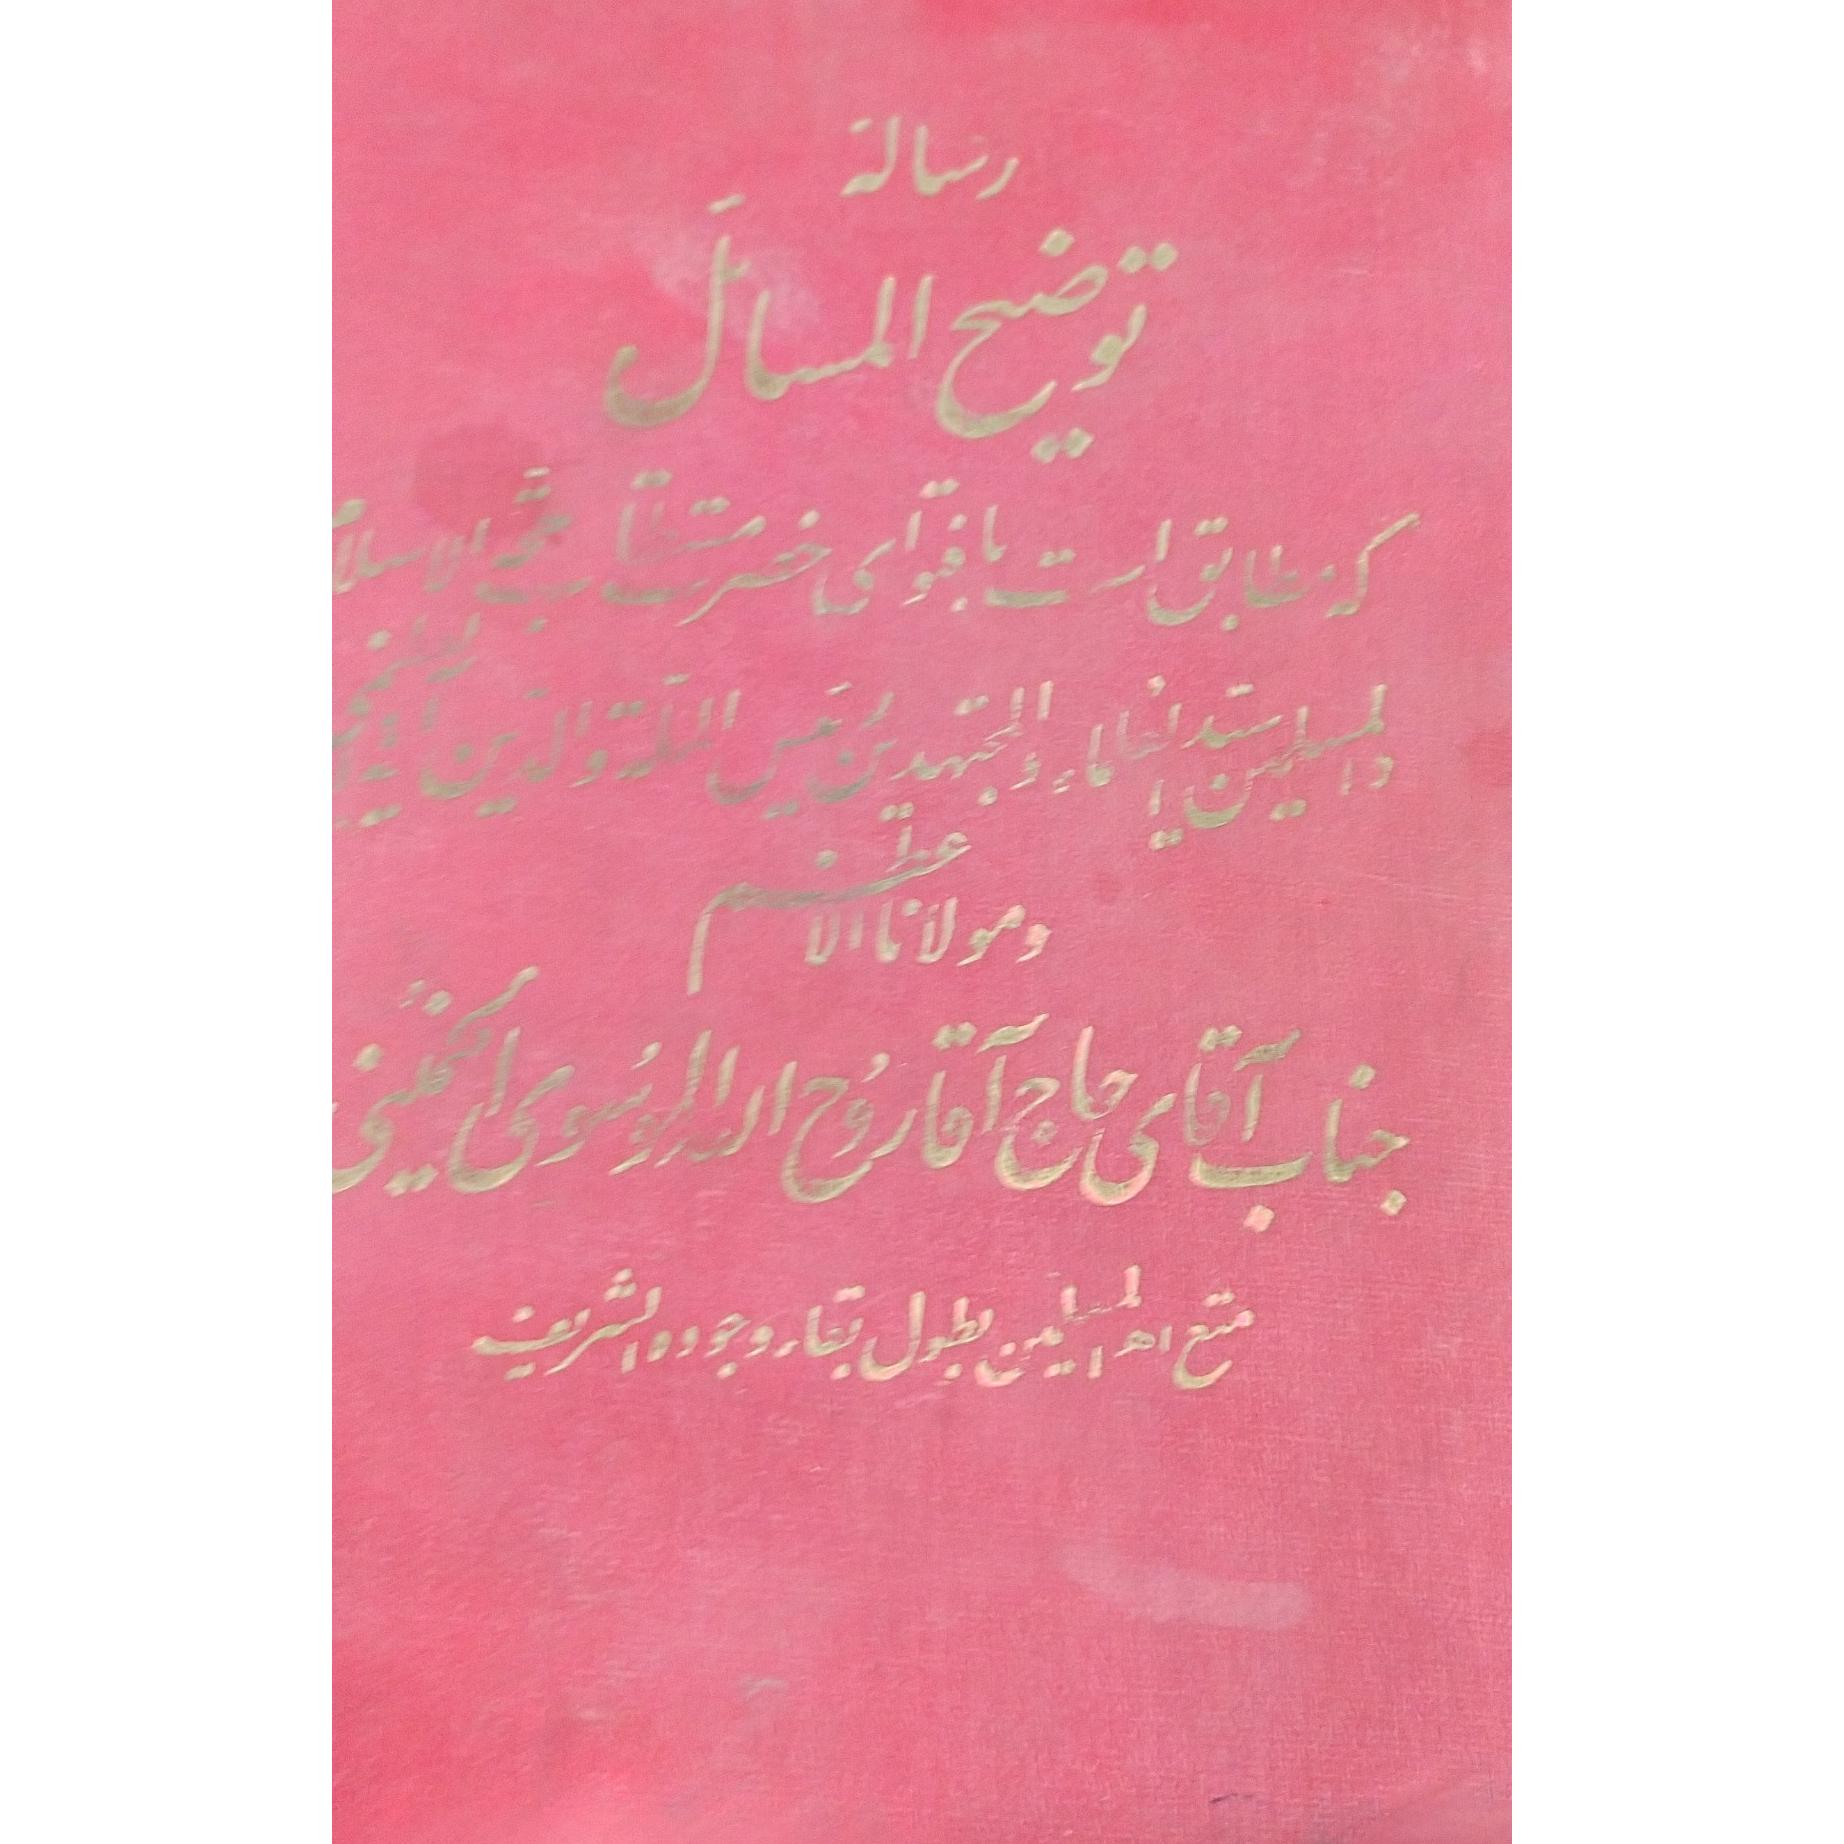 رسالة
توضیح المسائل
که مطابق است با فتوای حضرت مستطاب حجة الاسلام
والمسلمین سید الفقهاء و المجتهدین رئیس الملة والدین آیة الله العظمی
ومولانا الاعظم
جناب آقای حاج آقا روح الله الموسوی الخمینی
متع الله المسلمین بطول بقاء وجوده الشریف